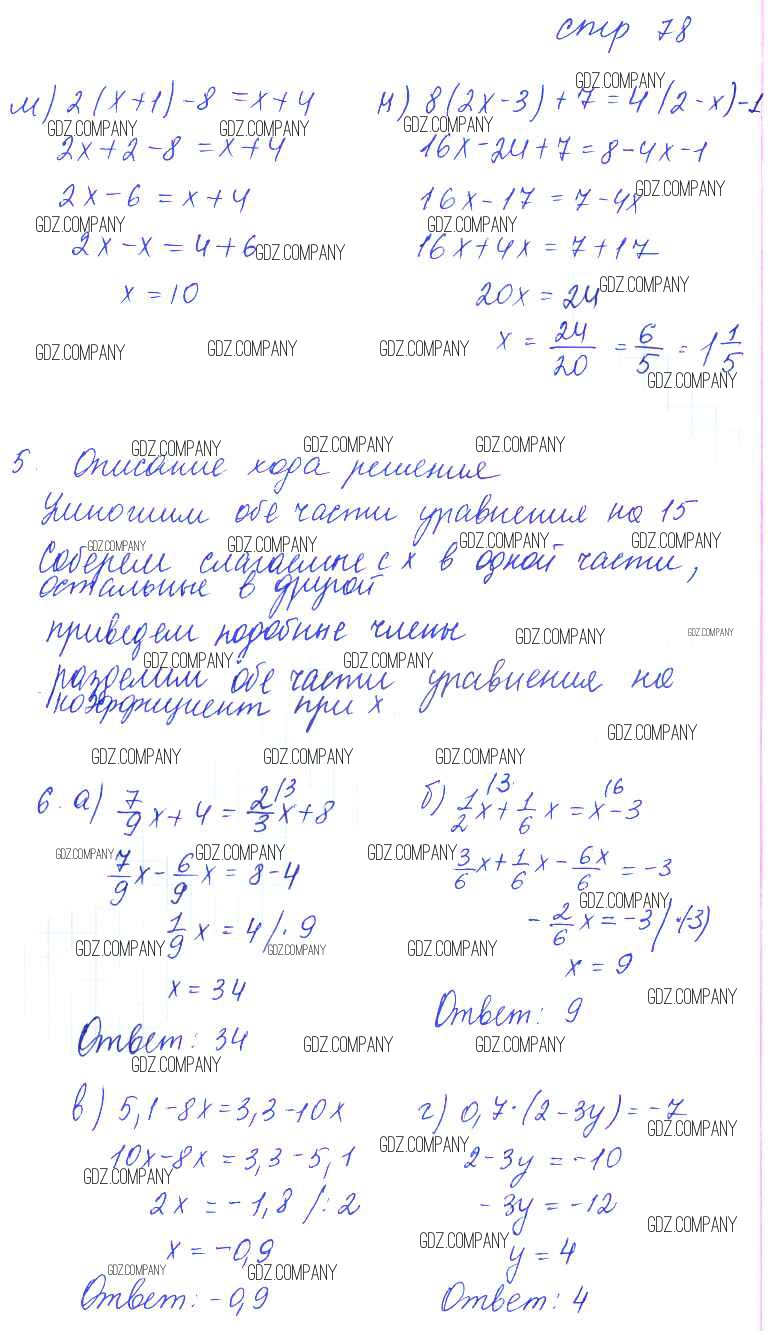 стр 78
м) 2(x+1)-8 = x+4
2x+2-8 = x+4
2x-6 = x+4
2x-x = 4+6
x = 10
н) 8(2x-3)+7 = 4(2-x)-1
16x-24+7 = 8-4x-1
16x-17 = 7-4x
16x+4x = 7+17
20x = 24
x = 24/20 = 6/5 = 1 1/5
5. Описание хода решения
Умножим обе части уравнения на 15
Соберем слагаемые с x в одной части,
остальные в другой
приведем подобные члены
разделим обе части уравнения на
коэффициент при x
6. а) 7/9 x + 4 = 2/3 x + 8
7/9 x - 6/9 x = 8-4
1/9 x = 4 /· 9
x = 34
Ответ: 34
б) 1/2 x + 1/6 x = x - 3
3/6 x + 1/6 x - 6x/6 = -3
- 2/6 x = -3 / ·(-3)
x = 9
Ответ: 9
в) 5,1-8x = 3,3-10x
10x-8x = 3,3-5,1
2x = -1,8 /: 2
x = -0,9
Ответ: -0,9
г) 0,7·(2-3y) = -7
2-3y = -10
-3y = -12
y = 4
Ответ: 4
GDZ.COMPANY